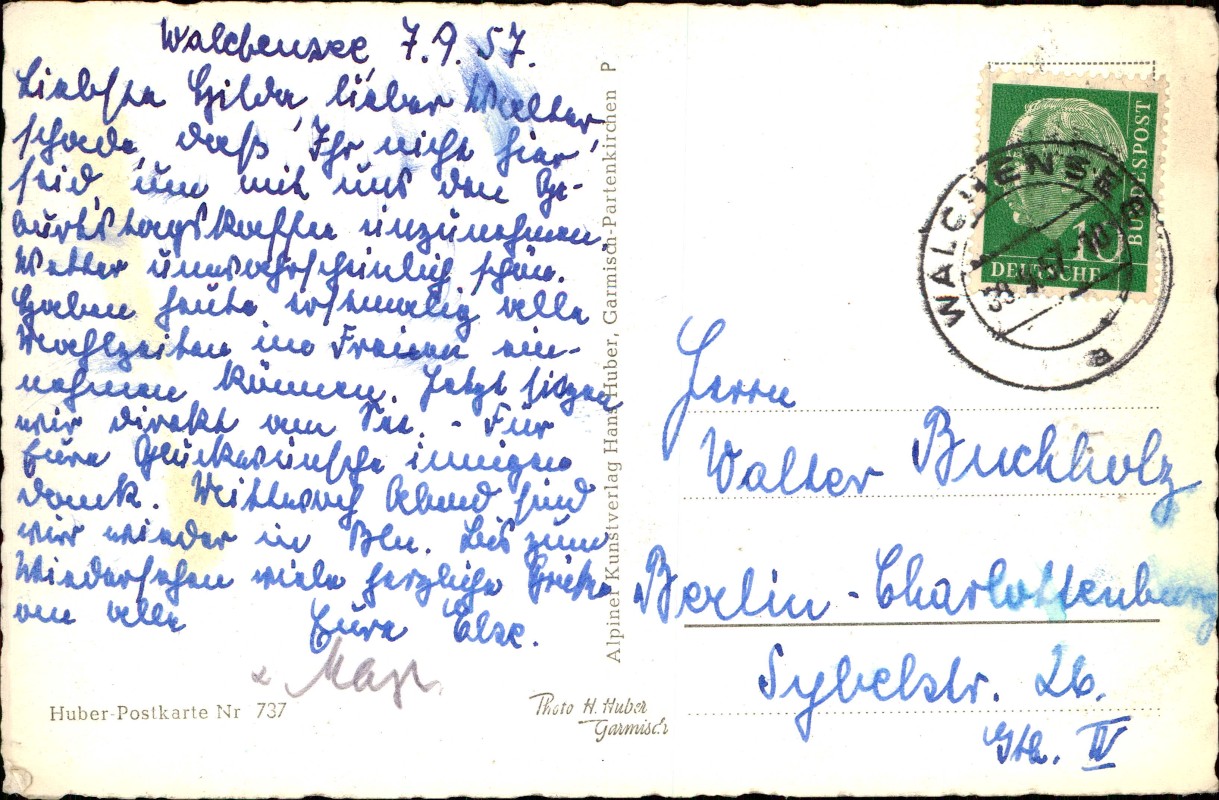 Walchensee, 7.9.57.
Liebste Hilda, lieber Walter,
schade, daß Ihr nicht hier
seid, um mit uns den Ge-
burtstagskaffee einzunehmen.
Wetter unwahrscheinlich schön.
Haben heute erstmalig alle
Mahlzeiten im Freien ein-
nehmen können. Jetzt sitzen
wir direkt am See. - Für
Eure Glückwünsche innigen
Dank. Mittwoch Abend sind
wir wieder in Bln. Bis zum
Wiedersehen viele herzliche Grüße
an alle Eure Else.
Huber-Postkarte Nr 737
Photo H. Huber
Garmisch
Alpiner Kunstverlag Hans Huber, Garmisch-Partenkirchen P
DEUTSCHE BUNDESPOST
10
WALCHENSEE
a
Herrn
Walter Buchholz
Berlin-Charlottenburg
Sybelstr. 26.
Gth. IV